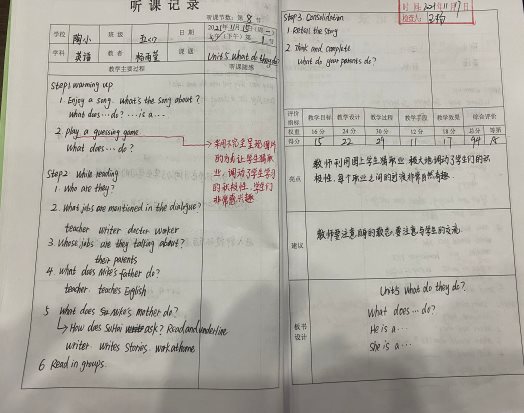 听课记录
听课节数：第8节
学校 陶小 班级 五(1) 日期 2021年11月
学科 英语 教者 杨雨萱 课题 Unit5 What do they do?
教学主要过程 听课随感
Step1 warming up
1. Enjoy a song. What's the song about?
What does…do? …is a…
2. play a guessing game
What does…do?
的方式让学生猜职
业，调动了学生学习
的积极性，学生们
非常感兴趣
Step2 While reading
1. Who are they?
2. What jobs are mentioned in the dialogue?
teacher writer doctor worker
3. Whose jobs are they talking about?
their parents
4. What does Mike's father do?
teacher. teaches English
5 What does Su Hai's mother do?
How does Su Hai ask? Read and underline
writer writes stories. work at home
6 Read in groups.
Step3. Consolidation
1. Retell the story
2. Think and complete
What do your parents do?
评价指标 教学目标 教学设计 教学过程 教学手段 教学效果 综合评价
权重 16分 24分 30分 12分 18分 总分 等第
得分 15 22 29 11 17 94 A
亮点
教师利用图让学生猜职业，极大地调动了学生们的积
极性，每个职业之间的过渡非常自然有趣.
建议
教师要注意自身的教态，要注意与学生的交流
板书设计
Unit5 What do they do?
What does…do?
He is a…
She is a…